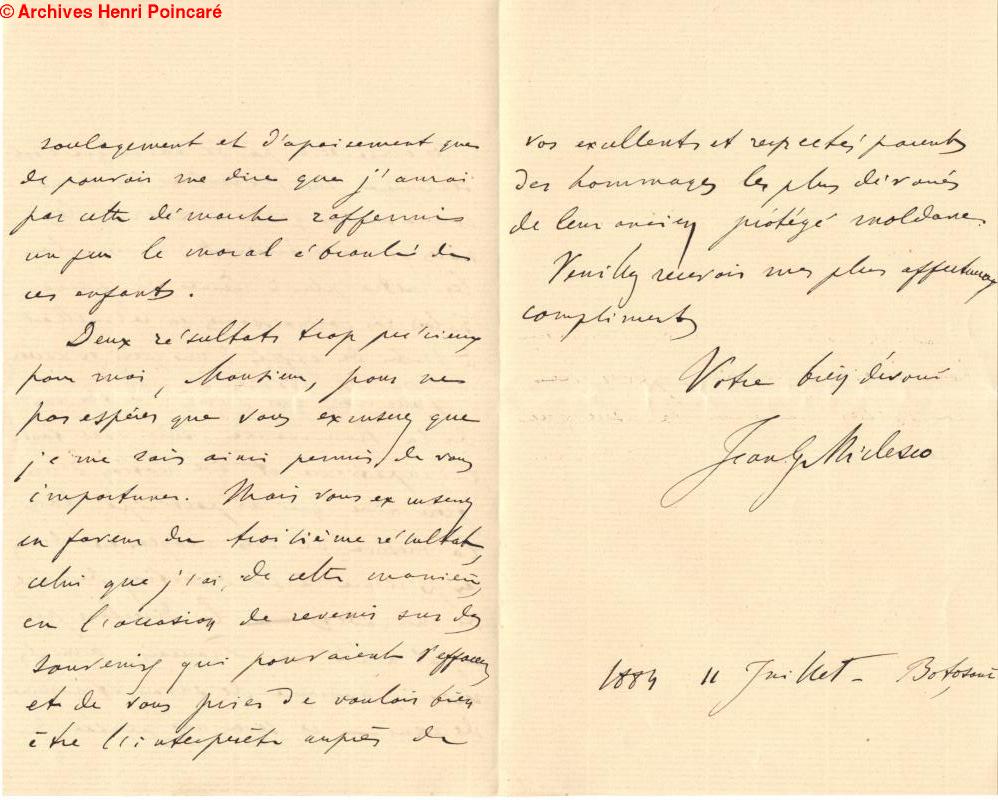 © Archives Henri Poincaré
soulagement et d'apaisement que
de pouvoir me dire que j'aurai
par cette démarche raffermi
un peu le moral ébranlé de
ces enfants.
Deux résultats trop précieux
pour moi, Monsieur, pour ne
pas espérer que vous excuserez que
je me sois ainsi permis de vous
importuner. Mais vous excuserez
en faveur du troisième résultat,
celui que j'ai, de cette manière,
eu l'occasion de revenir sur des
souvenirs qui pouvaient s'effacer
et de vous prier de vouloir bien
être l'interprète auprès de
vos excellents et respectés parents
des hommages les plus dévoués
de leur ancien protégé moldave.
Veuillez recevoir mes plus affectueux
compliments
Votre bien dévoué
Jean G Miclesco
1884 11 Juillet - Botosani